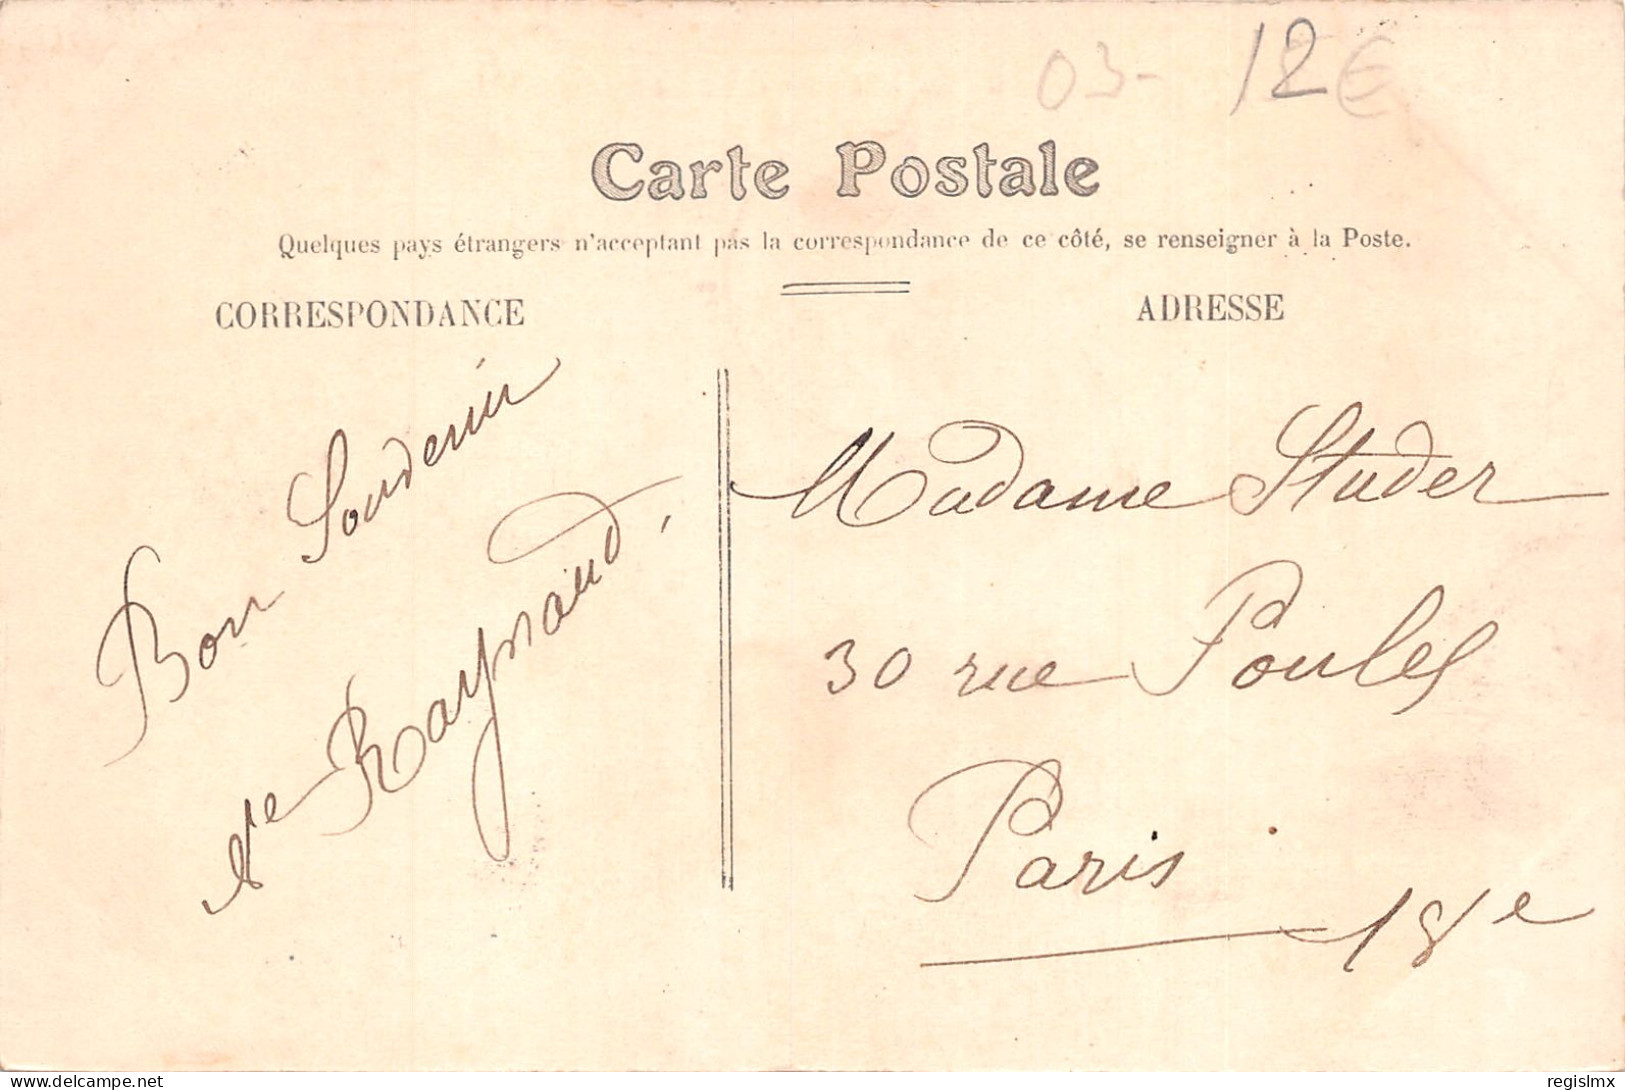 03- 12€
Carte Postale
Quelques pays étrangers n'acceptant pas la correspondance de ce côté, se renseigner à la Poste.
CORRESPONDANCE
ADRESSE
Bon Souvenir
Raynaud.
Madame Studer
30 rue Poulet
Paris
18e
www.delcampe.net
regislmx